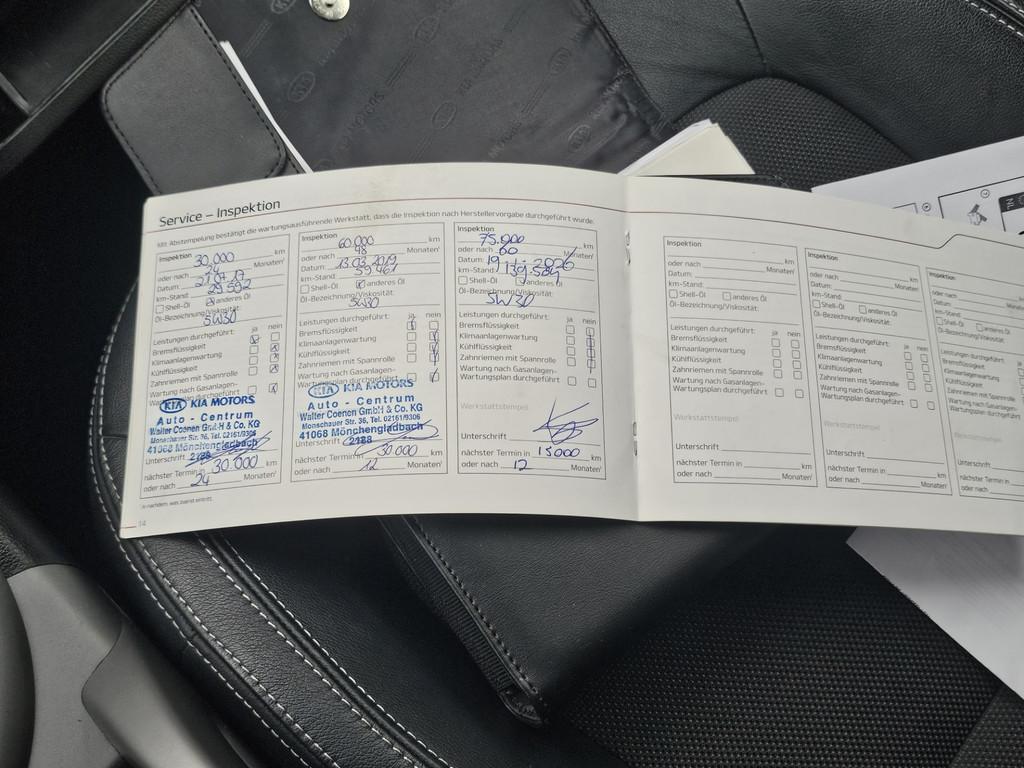 Service – Inspektion
Mit Abstempelung bestätigt die wartungsausführende Werkstatt, dass die Inspektion nach Herstellervorgabe durchgeführt wurde.
Inspektion 30.000 km
oder nach 24 Monaten¹
Datum:
km-Stand: 29.592
Shell-Öl anderes Öl
Öl-Bezeichnung/Viskosität:
5W30
Leistungen durchgeführt: ja nein
Bremsflüssigkeit
Klimaanlagenwartung
Kühlflüssigkeit
Zahnriemen mit Spannrolle
Wartung nach Gasanlagen-
Wartungsplan durchgeführt
KIA KIA MOTORS
Auto - Centrum
Walter Coenen GmbH & Co. KG
Monschauer Str. 36, Tel. 02161/9306
41068 Mönchengladbach
Unterschrift 2188
nächster Termin in 30.000 km
oder nach 24 Monaten¹
¹ je nachdem, was zuerst eintritt.
14
Inspektion 60.000 km
oder nach 48 Monaten¹
Datum: 13.03.2019
km-Stand: 59.461
Shell-Öl anderes Öl
Öl-Bezeichnung/Viskosität:
5W30
Leistungen durchgeführt: ja nein
Bremsflüssigkeit
Klimaanlagenwartung
Kühlflüssigkeit
Zahnriemen mit Spannrolle
Wartung nach Gasanlagen-
Wartungsplan durchgeführt
KIA KIA MOTORS
Auto - Centrum
Walter Coenen GmbH & Co. KG
Monschauer Str. 36, Tel. 02161/9306
41068 Mönchengladbach
Unterschrift 2188
nächster Termin in 30.000 km
oder nach 12 Monaten¹
Inspektion 75.000 km
oder nach 60 Monaten¹
Datum:
km-Stand: 139.504
Shell-Öl anderes Öl
Öl-Bezeichnung/Viskosität:
5W30
Leistungen durchgeführt: ja nein
Bremsflüssigkeit
Klimaanlagenwartung
Kühlflüssigkeit
Zahnriemen mit Spannrolle
Wartung nach Gasanlagen-
Wartungsplan durchgeführt
Werkstattstempel
Unterschrift
nächster Termin in 15000 km
oder nach 12 Monaten¹
Inspektion km
oder nach Monaten¹
Datum:
km-Stand:
Shell-Öl anderes Öl
Öl-Bezeichnung/Viskosität:
Leistungen durchgeführt: ja nein
Bremsflüssigkeit
Klimaanlagenwartung
Kühlflüssigkeit
Zahnriemen mit Spannrolle
Wartung nach Gasanlagen-
Wartungsplan durchgeführt
Werkstattstempel
Unterschrift
nächster Termin in km
oder nach Monaten¹
Inspektion km
oder nach Monaten¹
Datum:
km-Stand:
Shell-Öl anderes Öl
Öl-Bezeichnung/Viskosität:
Leistungen durchgeführt: ja nein
Bremsflüssigkeit
Klimaanlagenwartung
Kühlflüssigkeit
Zahnriemen mit Spannrolle
Wartung nach Gasanlagen-
Wartungsplan durchgeführt
Werkstattstempel
Unterschrift
nächster Termin in km
oder nach Monaten¹
Inspektion
oder nach
Datum:
km-Stand:
Shell-Öl anderes Öl
Öl-Bezeichnung/Viskosität:
Leistungen durchgeführt:
Bremsflüssigkeit
Klimaanlagenwartung
Kühlflüssigkeit
Zahnriemen mit Spannrolle
Wartung nach Gasanlagen-
Wartungsplan durchgeführt
Werkstattstempel
Unterschrift
nächster Termin in
oder nach